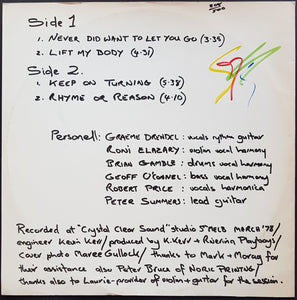 Side 1
1. NEVER DID WANT TO LET YOU GO (3·35)
2. LIFT MY BODY (4·31)
Side 2.
1. KEEP ON TURNING (5·38)
2. RHYME OR REASON (4·10)
Personell: GRAEME DRENDEL: vocals rythm guitar
RONI ELAZARY: violin vocal harmony
BRIAN GAMBLE: drums vocal harmony
GEOFF O'CONNELL: bass vocal harmony
ROBERT PRICE: vocals harmonica
PETER SUMMERS: lead guitar
Recorded at "Crystal Clear Sound" studio Sth MELB MARCH '78/
engineer Kevin Kerr/produced by K.Kerr + Riverina Playboys/
cover photo Maree Gullock/ thanks to Mark + Morag for
their assistance also Peter Bruce of NORIC PRINTING/
thanks also to Laurie-provider of violin + guitar for the session.